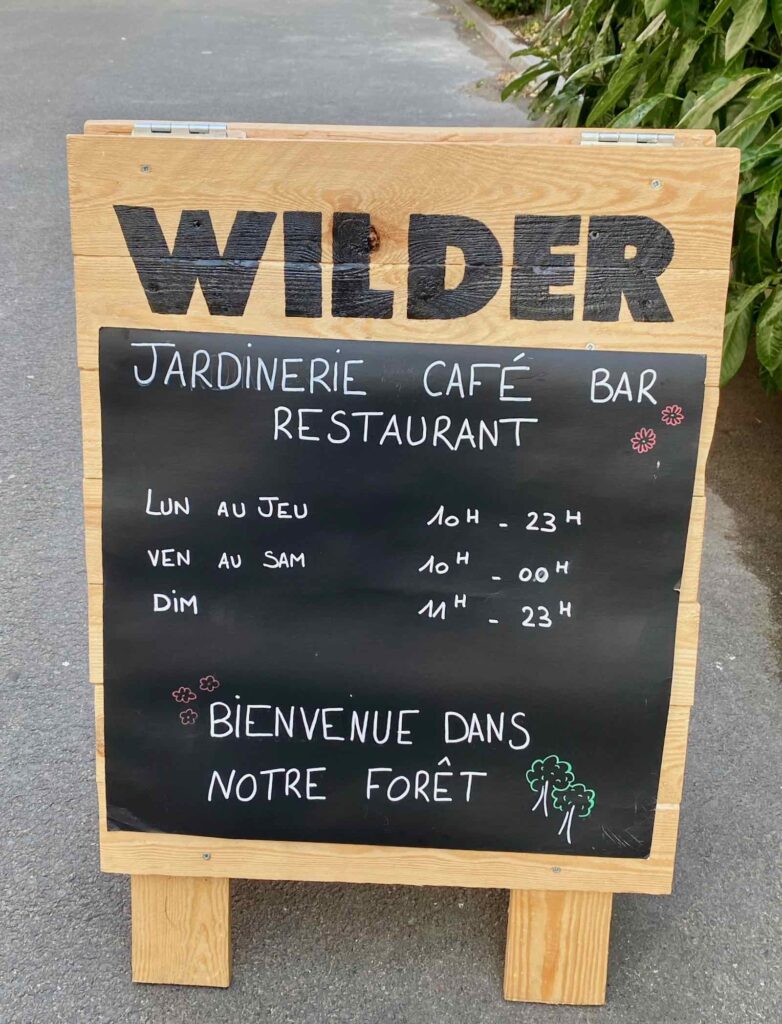 WILDER
JARDINERIE CAFÉ BAR
RESTAURANT
LUN AU JEU 10H - 23H
VEN AU SAM 10H - 00H
DIM 11H - 23H
BIENVENUE DANS
NOTRE FORÊT